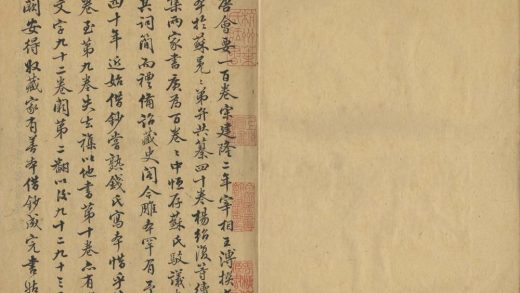 會要一百卷宋建隆二年宰相王溥撰
於蘇冕〻弟弁共纂四十卷楊紹復等續
集兩家書廣為百卷〻中恒存蘇氏駁議
其詞簡而禮備詔藏史閣今雕本罕有
四十年近始借鈔常熟錢氏寫本惜乎
卷至第九卷失去雜以他書第十卷亦有
文字九十二卷闕第二翻以後九十二九十三
闕安得收藏家有善本借鈔成完書姑